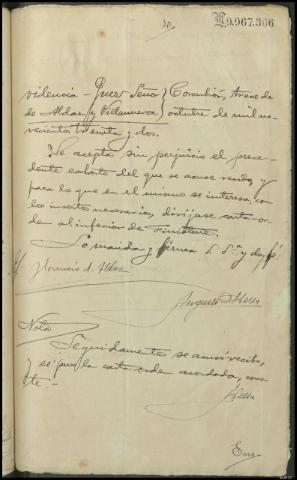 L9.967.366
videncia - Juez Señor } Corcubión, trece de
de Aldaz y Villanueva } octubre de mil no-
vecientos treinta y dos.
Se acepta sin perjuicio el prece-
dente exhorto del que se acuse recibo, y
para lo que en el mismo se interesa, con
los insertos necesarios, dirijase carta-or-
den al inferior de Finisterre.
Lo manda y firma S. Sª. y doy fé
Horacio A. Aldaz
Augusto
Nota
Seguidamente se acusó recibo,
y se puso la carta orden acordada, cons-
te.-